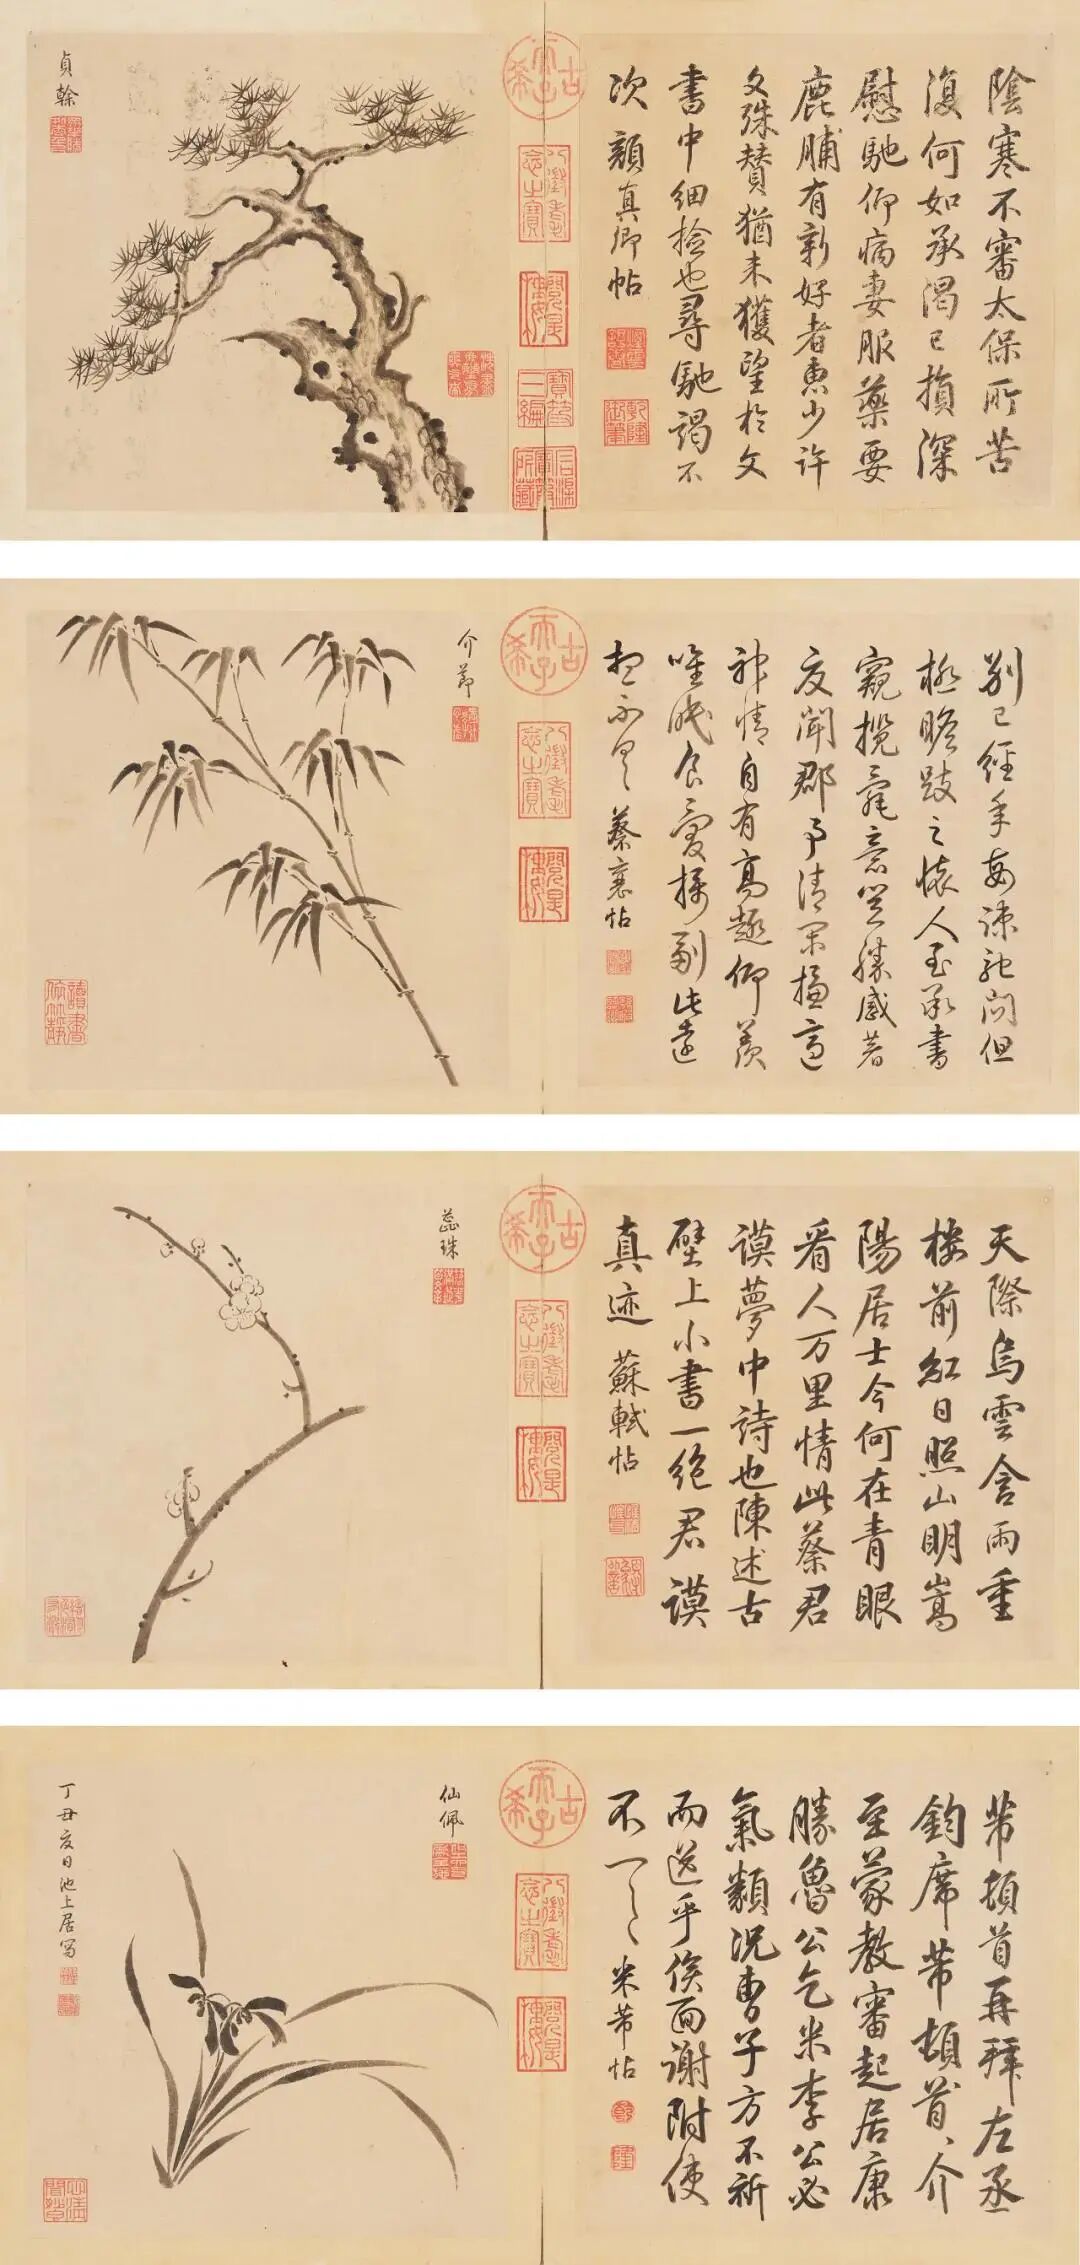 陰寒不審太保所苦
復何如承渴已損深
慰馳仰病妻服藥要
鹿脯有新好者惠少許
幸殊贊猶未獲望於文
書中細捡也尋馳謁不
次 顏真卿帖
貞榦
別已經年每疎馳問但
極瞻跂之懷人至承書
窺攬意感著
友聞郡事清閑揚
神情自有高趣仰羨
唯眠食愛攝副此遠
想不具 蔡襄帖
介節
天際烏雲含雨重
樓前紅日照山明嵩
陽居士今何在青眼
看人万里情此蔡君
謨夢中詩也陳述古
壁上小書一絶君謨
真迹 蘇軾帖
蕊珠
芾頓首再拜左丞
鈞席芾頓首、介
至蒙教審起居康
勝魯公乞米李公必
氣類況曹子方不祈
而送乎俟面謝附使
不一一 米芾帖
仙佩
丁丑夏日池上居寫
古希天子
八徵耄念之寶
寶笈三編
乾隆御筆